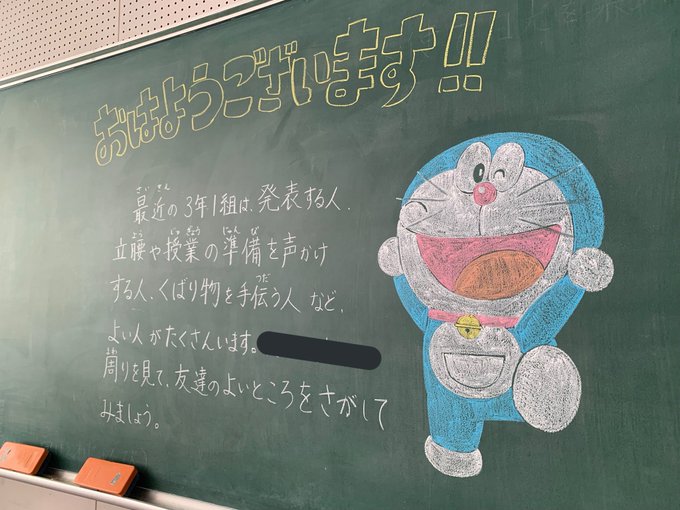 おはようございます!!
最近の3年1組は、発表する人、
立腰や授業の準備を声かけ
する人、くばり物を手伝う人など、
よい人がたくさんいます。
周りを見て、友達のよいところをさがして
みましょう。